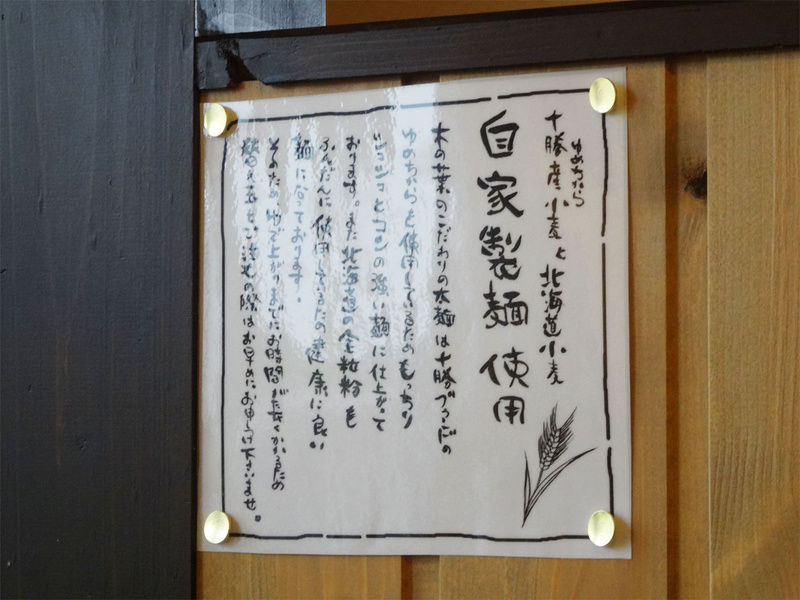 ゆめちから
十勝産小麦と北海道小麦
自家製麺使用
木の葉のこだわりの太麺は十勝ブランドの
ゆめちからを使用しているためもっちり
シコシコとコシの強い麺に仕上がって
おります。また北海道の全粒粉も
ふんだんに使用してるため健康に良い
麺になっております。
そのためゆで上がりまでにお時間が
ご注文の際はお早めにお申しつけ下さいませ。